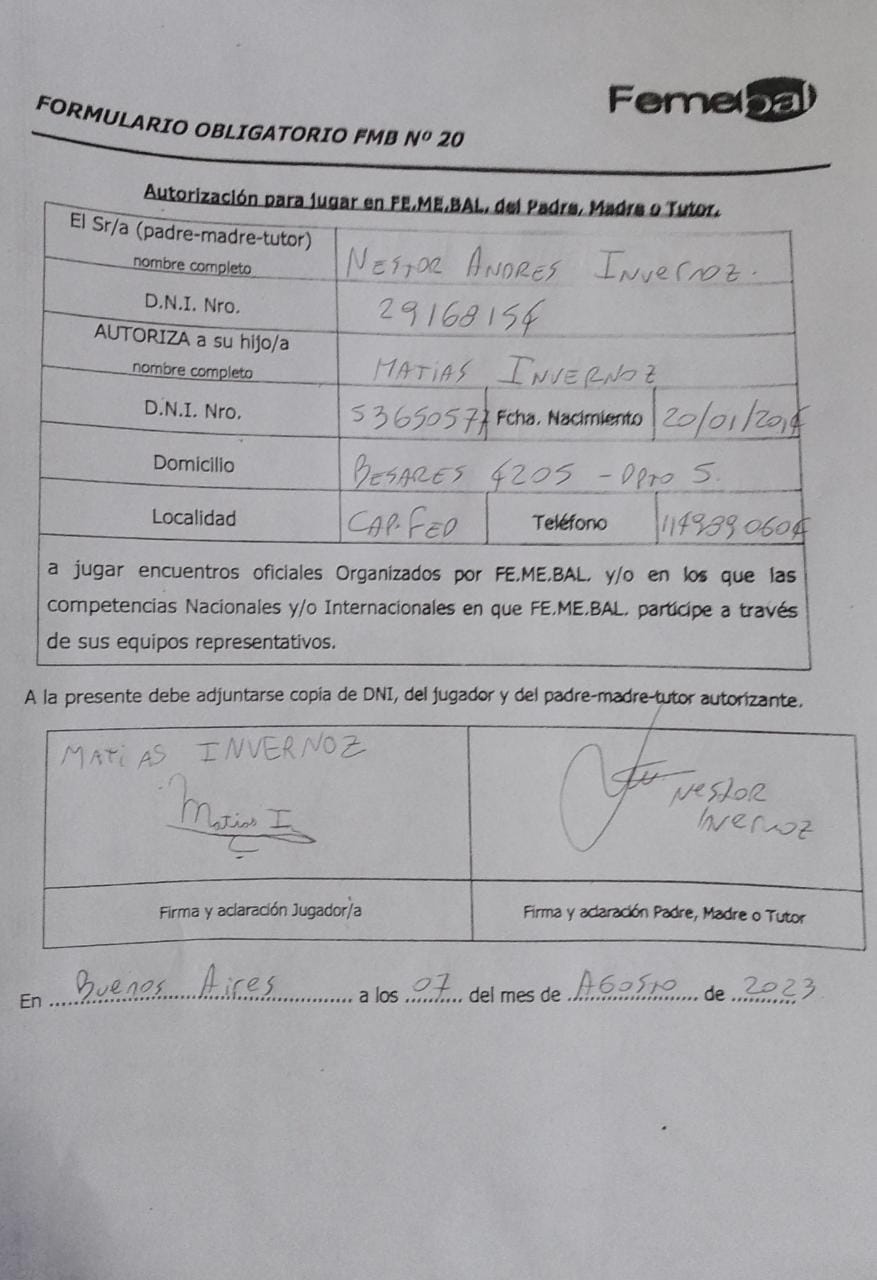 Femebal
FORMULARIO OBLIGATORIO FMB Nº 20
Autorización para jugar en FE.ME.BAL. del Padre, Madre o Tutor.
El Sr/a (padre-madre-tutor)
nombre completo
NESTOR ANDRES INVERNOZ.
D.N.I. Nro.
29168154
AUTORIZA a su hijo/a
nombre completo
MATIAS INVERNOZ
D.N.I. Nro.
53650577
Fcha. Nacimiento
20/01/2014
Domicilio
BESARES 4205 - DPTO 5.
Localidad
CAP. FED
Teléfono
1149890604
a jugar encuentros oficiales Organizados por FE.ME.BAL. y/o en los que las
competencias Nacionales y/o Internacionales en que FE.ME.BAL. participe a través
de sus equipos representativos.
A la presente debe adjuntarse copia de DNI, del jugador y del padre-madre-tutor autorizante.
MATIAS INVERNOZ
Matias I
Nestor
Invernoz
Firma y aclaración Jugador/a
Firma y aclaración Padre, Madre o Tutor
En Buenos Aires a los 07 del mes de AGOSTO de 2023